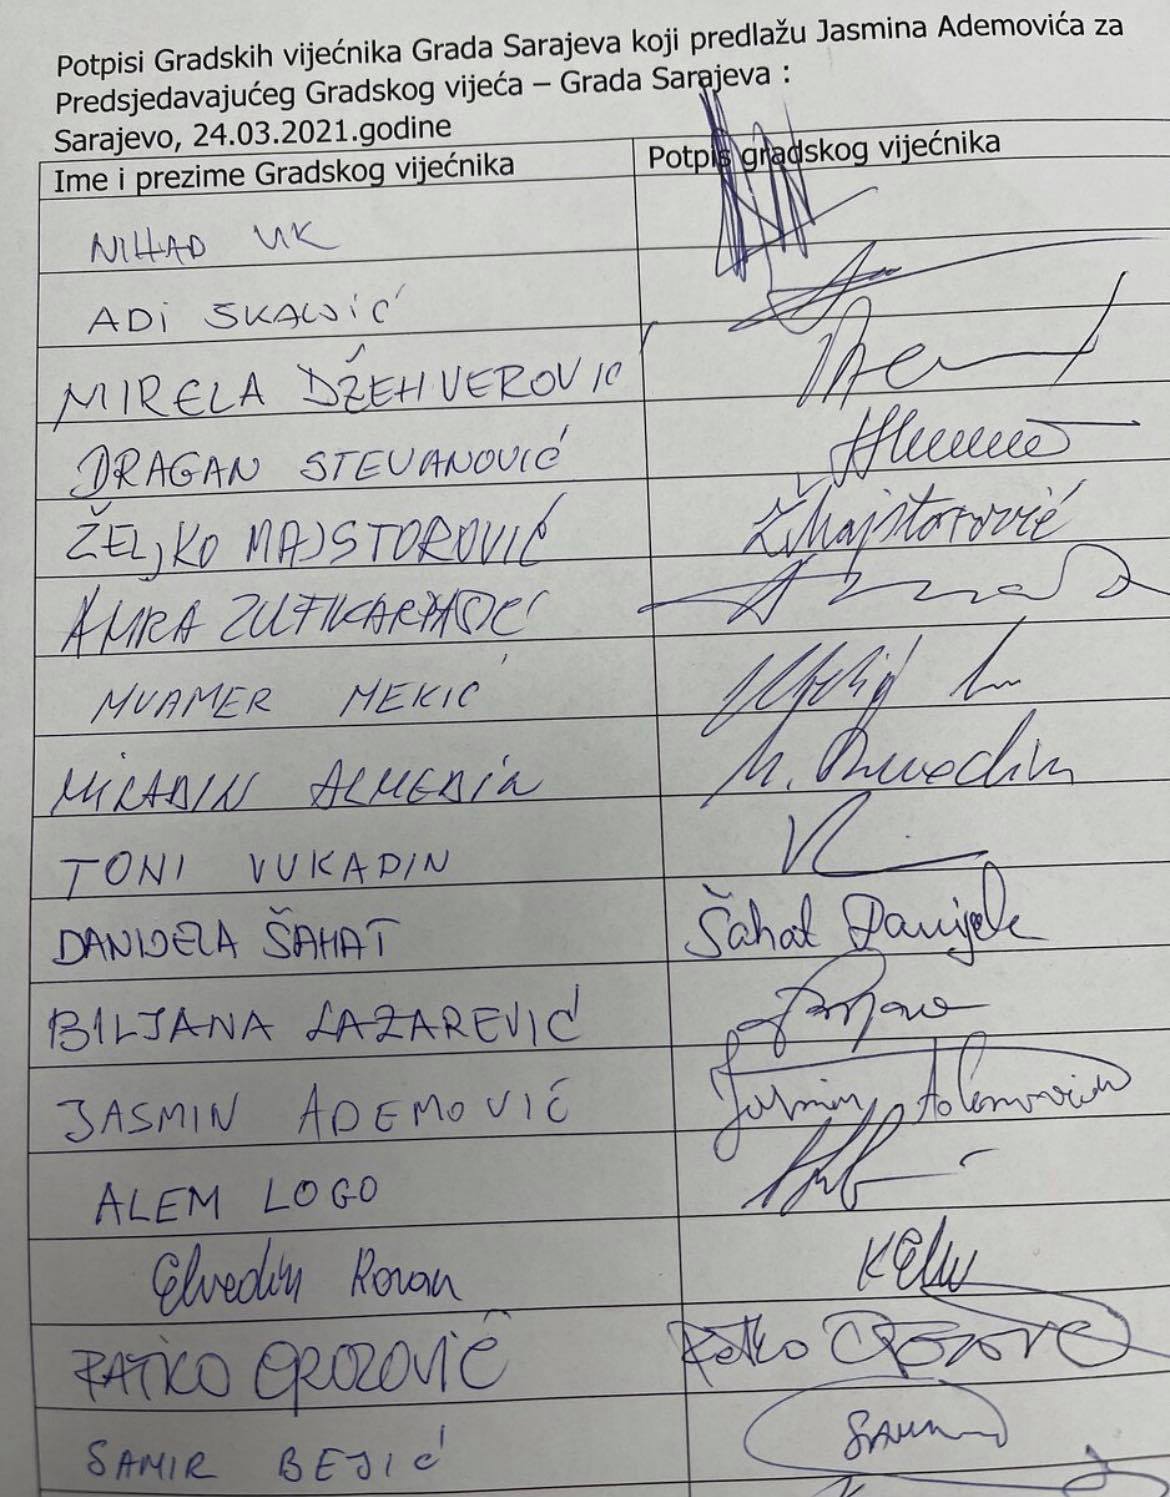 Potpisi Gradskih vijećnika Grada Sarajeva koji predlažu Jasmina Ademovića za
Predsjedavajućeg Gradskog vijeća – Grada Sarajeva :
Sarajevo, 24.03.2021.godine
Ime i prezime Gradskog vijećnika Potpis gradskog vijećnika
NIHAD UK
ADI ŠKALJIĆ
MIRELA DŽEHVEROVIĆ
DRAGAN STEVANOVIĆ
ŽELJKO MAJSTOROVIĆ Ž Majstorović
AMRA ZULFIKARPAŠIĆ
MUAMER MEKIĆ
MIRADIN ALMEDIN M. Almedin
TONI VUKADIN
DANIJELA ŠAHAT Šahat Danijela
BILJANA LAZAREVIĆ
JASMIN ADEMOVIĆ Jasmin Ademović
ALEM LOGO
Elvedin
RATKO OROZOVIĆ Ratko
SAMIR BEJIĆ